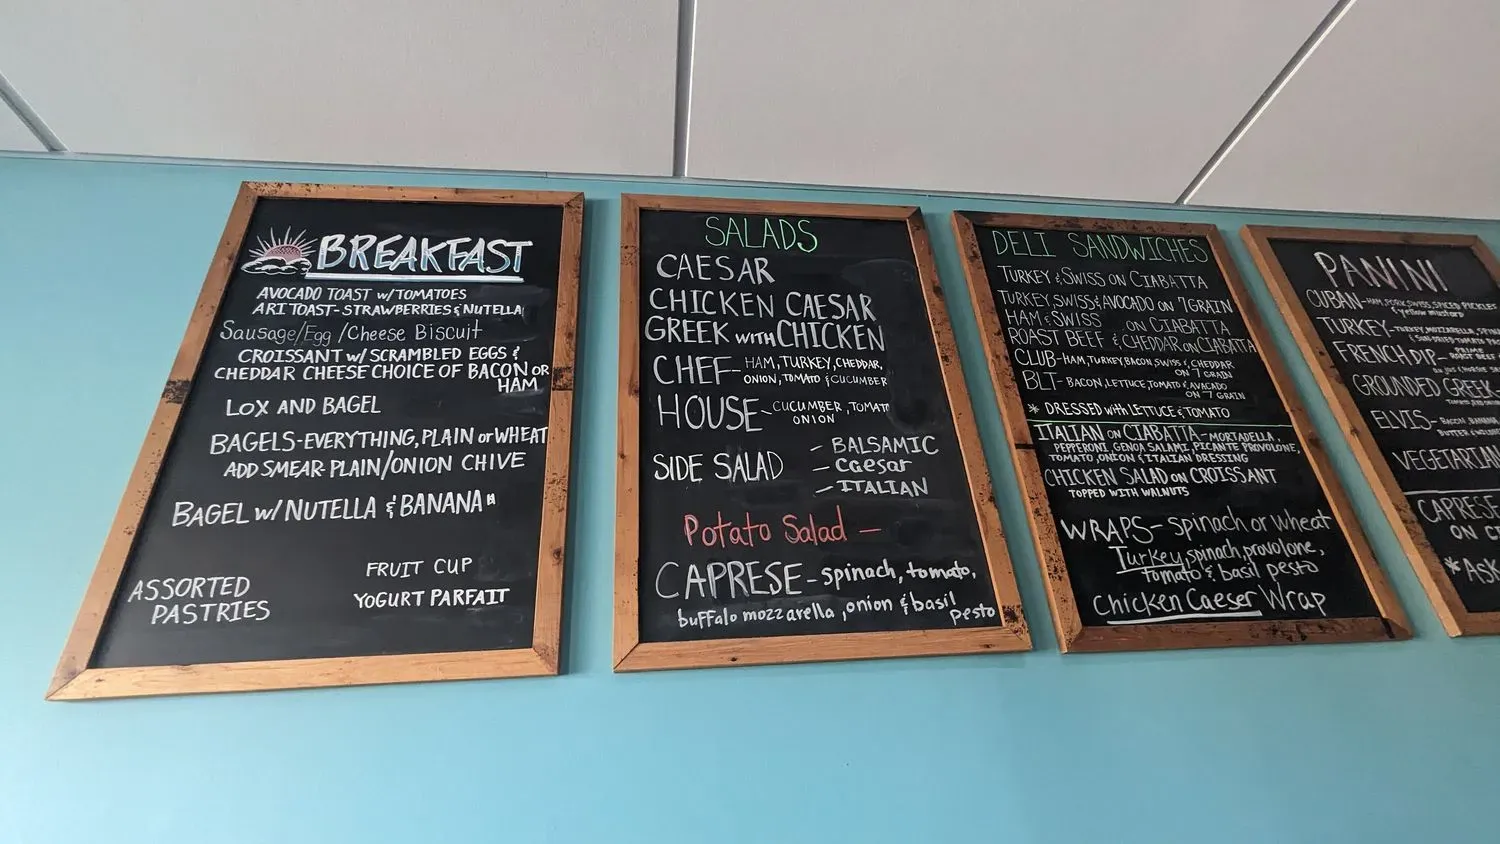 BREAKFAST
AVOCADO TOAST w/TOMATOES
ARI TOAST- STRAWBERRIES & NUTELLA
Sausage/Egg/Cheese Biscuit
CROISSANT w/ SCRAMBLED EGGS &
CHEDDAR CHEESE CHOICE OF BACON OR
HAM
LOX AND BAGEL
BAGELS-EVERYTHING, PLAIN or WHEAT
ADD SMEAR PLAIN/ONION CHIVE
BAGEL w/ NUTELLA & BANANA
FRUIT CUP
YOGURT PARFAIT
ASSORTED
PASTRIES
SALADS
CAESAR
CHICKEN CAESAR
GREEK WITH CHICKEN
CHEF- HAM, TURKEY, CHEDDAR,
ONION, TOMATO & CUCUMBER
HOUSE- CUCUMBER, TOMATO
ONION
SIDE SALAD
- BALSAMIC
- Caesar
- ITALIAN
Potato Salad -
CAPRESE- spinach, tomato,
buffalo mozzarella, onion & basil
pesto
DELI SANDWICHES
TURKEY & SWISS ON CIABATTA
TURKEY, SWISS & AVOCADO ON 7GRAIN
HAM & SWISS ON CIABATTA
ROAST BEEF & CHEDDAR ON CIABATTA
CLUB- HAM, TURKEY, BACON, SWISS & CHEDDAR
ON 7 GRAIN
BLT- BACON, LETTUCE, TOMATO & AVACADO
ON 7 GRAIN
* DRESSED with LETTUCE & TOMATO
ITALIAN ON CIABATTA- MORTADELLA,
PEPPERONI, GENOA SALAMI, PICANTE PROVOLONE,
TOMATO, ONION & ITALIAN DRESSING
CHICKEN SALAD ON CROISSANT
TOPPED WITH WALNUTS
WRAPS- spinach or wheat
Turkey, spinach, provolone,
tomato & basil pesto
Chicken Caeser Wrap
PANINI
CUBAN- HAM, PORK, SWISS, SPICED PICKLES
& yellow mustard
TURKEY- TURKEY, MOZZARELLA,
FRENCH DIP- ROAST BEEF
GROUNDED GREEK-
ELVIS- BACON, BANANA,
BUTTER &
VEGETARIAN
CAPRESE
ON
*Ask